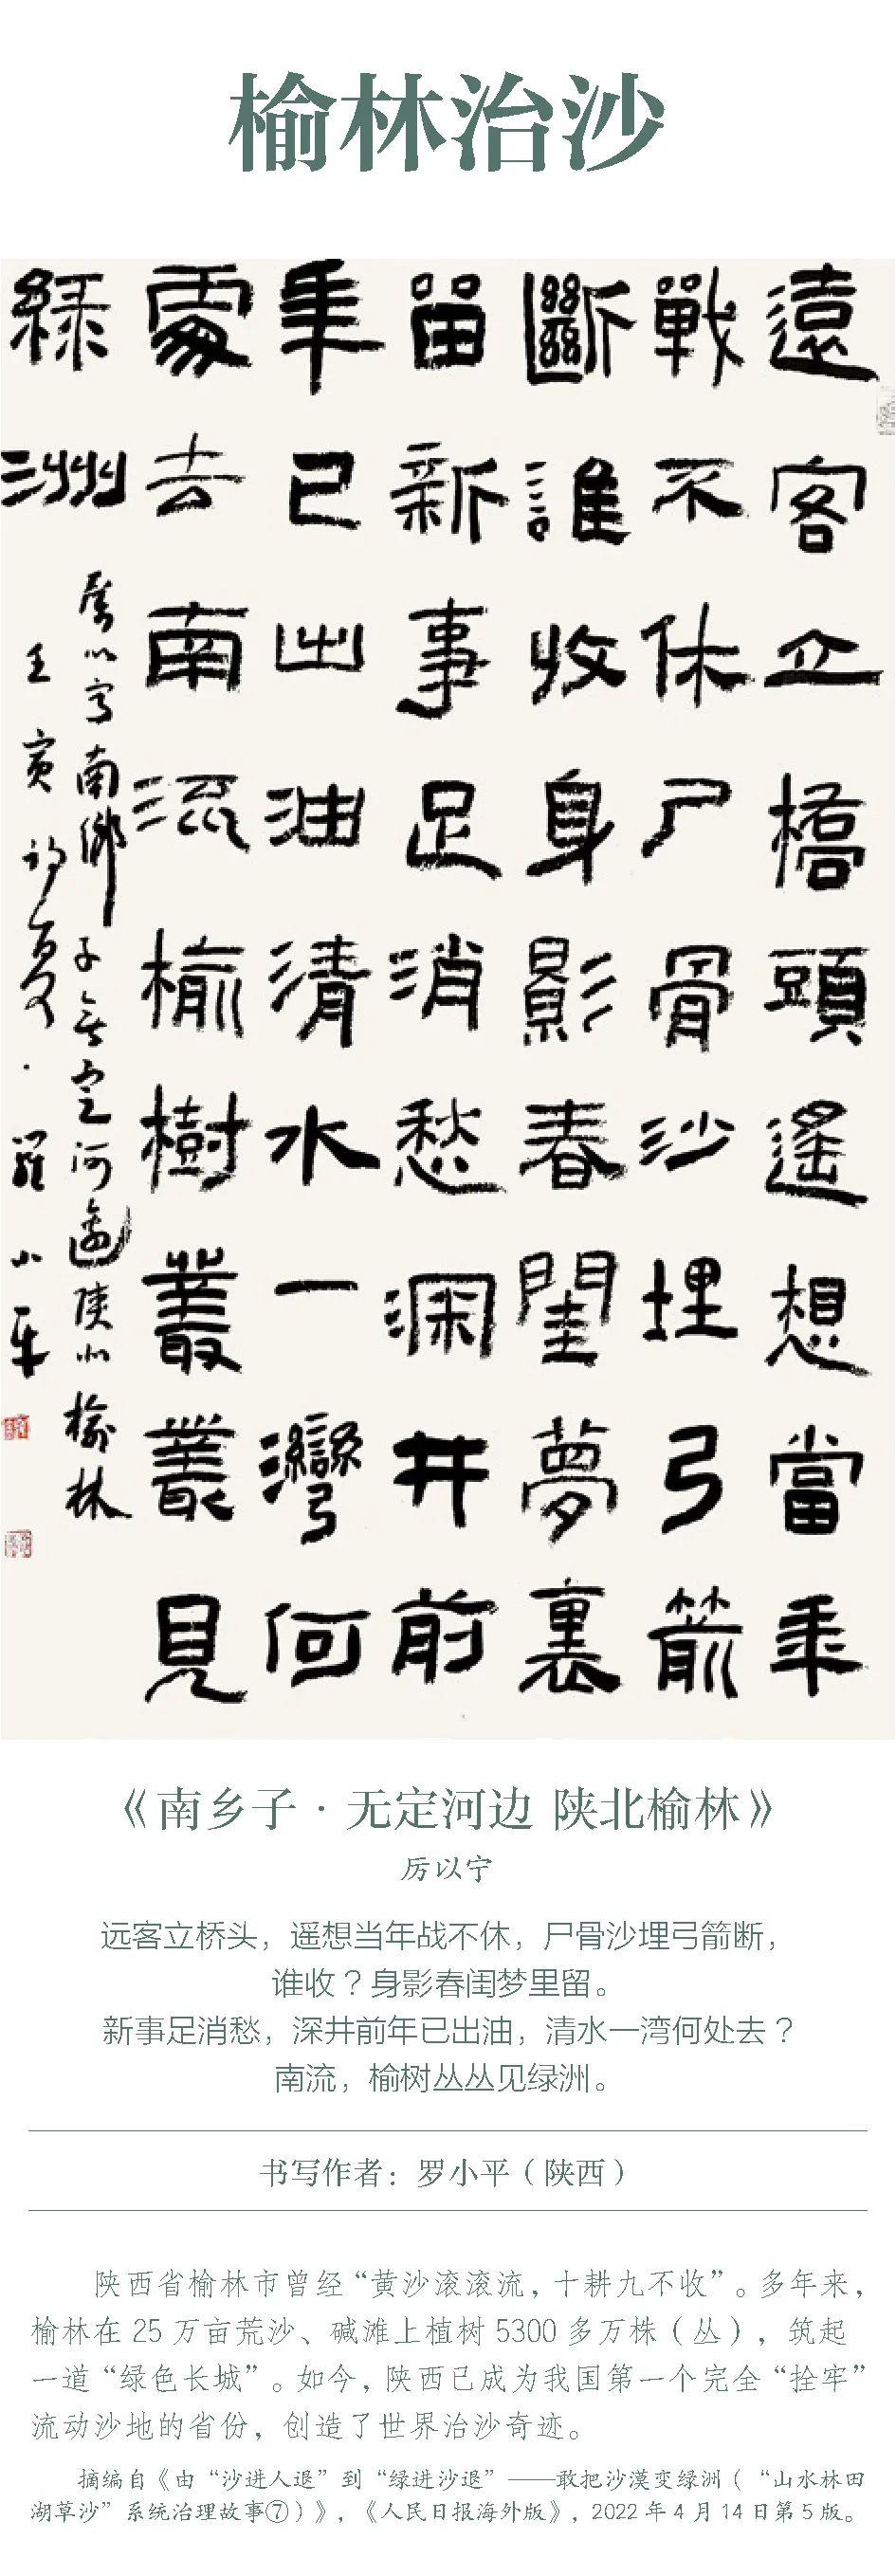 榆林治沙
遠客立橋頭遙想當年
戰不休尸骨沙埋弓箭
斷誰收身影春閨夢裏
留新事足消愁深井前
年已出油清水一灣何
處去南流榆樹叢叢見
綠洲
厲以寧南鄉子無定河邊陝北榆林
壬寅初夏·羅小平
《南乡子·无定河边 陕北榆林》
厉以宁
远客立桥头，遥想当年战不休，尸骨沙埋弓箭断，
谁收？身影春闺梦里留。
新事足消愁，深井前年已出油，清水一湾何处去？
南流，榆树丛丛见绿洲。
书写作者：罗小平（陕西）
陕西省榆林市曾经“黄沙滚滚流，十耕九不收”。多年来，
榆林在 25 万亩荒沙、碱滩上植树 5300 多万株（丛），筑起
一道“绿色长城”。如今，陕西已成为我国第一个完全“拴牢”
流动沙地的省份，创造了世界治沙奇迹。
摘编自《由“沙进人退”到“绿进沙退”——敢把沙漠变绿洲（“山水林田
湖草沙”系统治理故事⑦）》，《人民日报海外版》，2022 年 4 月 14 日第 5 版。